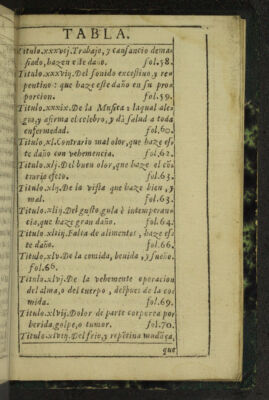 TABLA.
Titulo.xxxvij.Trabajo, y cansancio dema-
siado, hazen este daño. fol.58.
Titulo.xxxviij.Del sonido excessiuo, y re-
pentino: que haze este daño en su pro
porcion. fol.59.
Titulo.xxxix.De la Musica; laqual ale-
gra, y afirma el celebro, y dà salud a toda
enfermedad. fol.60.
Titulo.xl.Contrario mal olor, que haze es-
te daño con vehemencia. fol.62.
Titulo.xlj.Del buen olor, que haze el cõ-
trario efeto. fol.63.
Titulo.xlij.De la vista que haze bien, y
mal. fol.63.
Titulo.xliij.Del gusto, gula è intemperan-
cia, que haze gran daño. fol.64.
Titulo.xliiij.Falta de alimentos, haze es-
te daño. fol.66.
Titulo.xlv.De la comida, beuida, y sueño.
fol.66.
Titulo.xlvj.De la vehemente operacion
del alma, o del cuerpo, despues de la co-
mida. fol.69.
Titulo.xlvij.Dolor de parte corporea por
herida, golpe, o tumor. fol.70.
Titulo.xlviij.Del frio, y repẽtina mudãça,
que